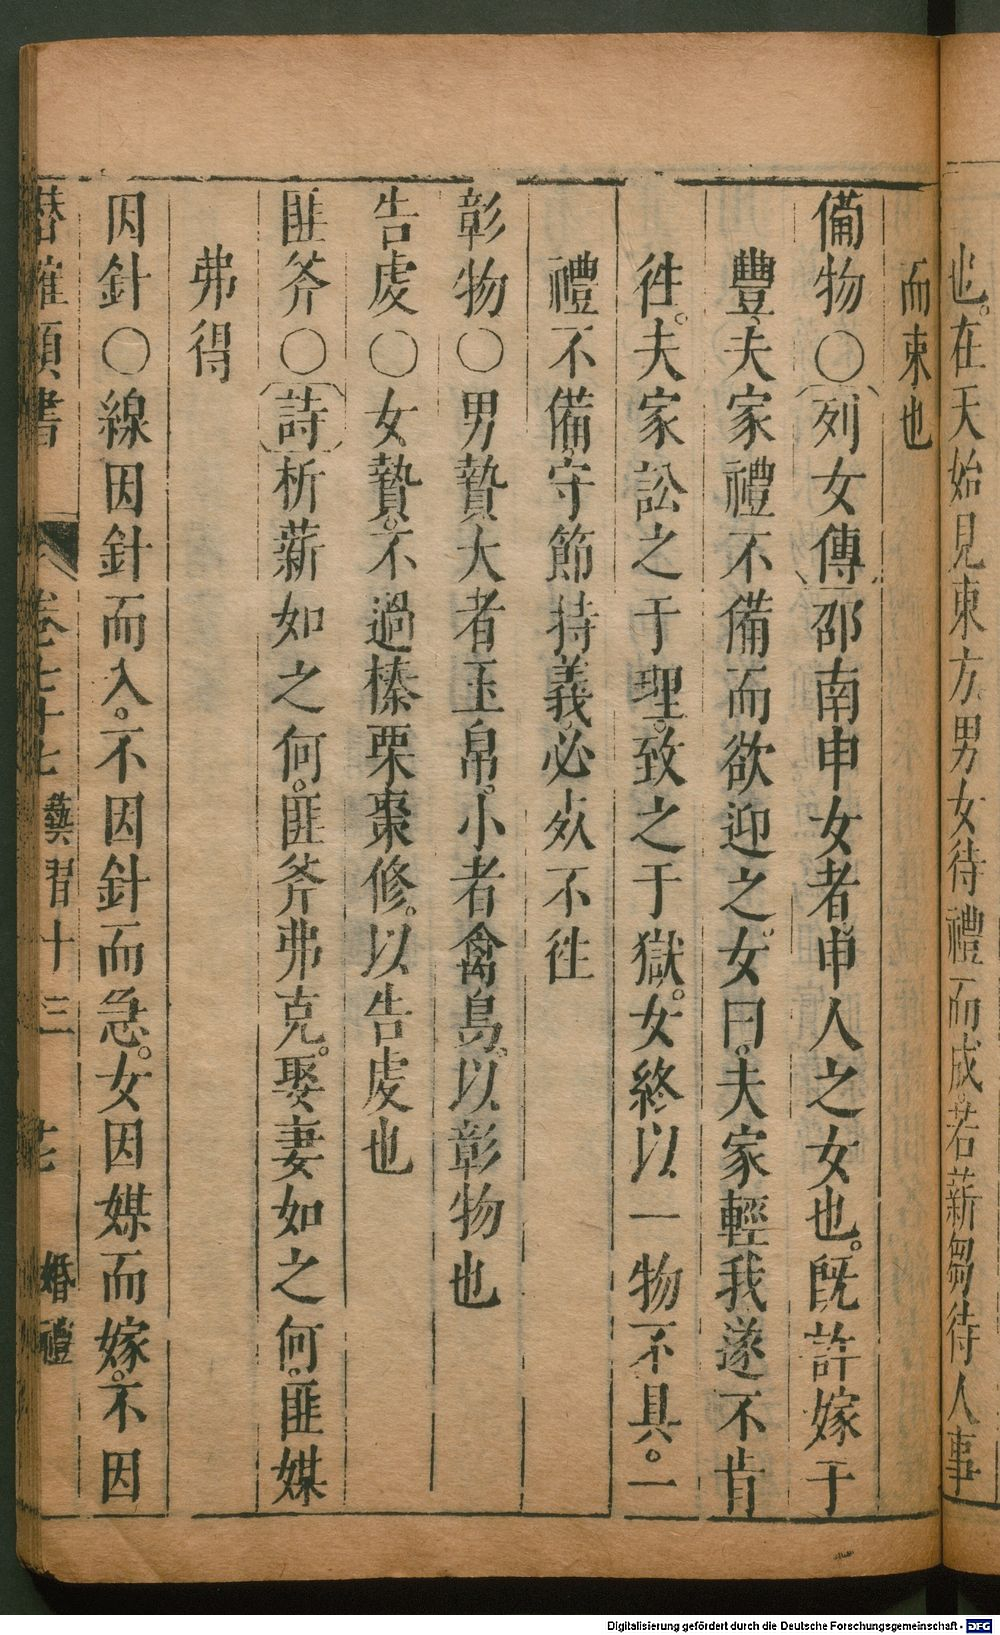 也。在天始見東方。男女待禮而成。若薪芻待人事
而束也
備物○列女傳邵南申女者申人之女也。旣許嫁于
豐夫家禮不備而欲迎之。女曰。夫家輕我遂不肯
徃。夫家訟之于理。致之于獄。女終以一物不具。一
禮不備。守節持義。必死不徃
彰物○男贄大者玉帛。小者禽鳥。以彰物也
告虔○女贄。不過榛栗棗修。以告虔也
匪斧○詩析薪如之何。匪斧弗克。娶妻如之何。匪媒
弗得
因針○線因針而入。不因針而急。女因媒而嫁。不因
卷七十七 藝習十三 婚禮
Digitalisierung gefördert durch die Deutsche Forschungsgemeinschaft - DFG